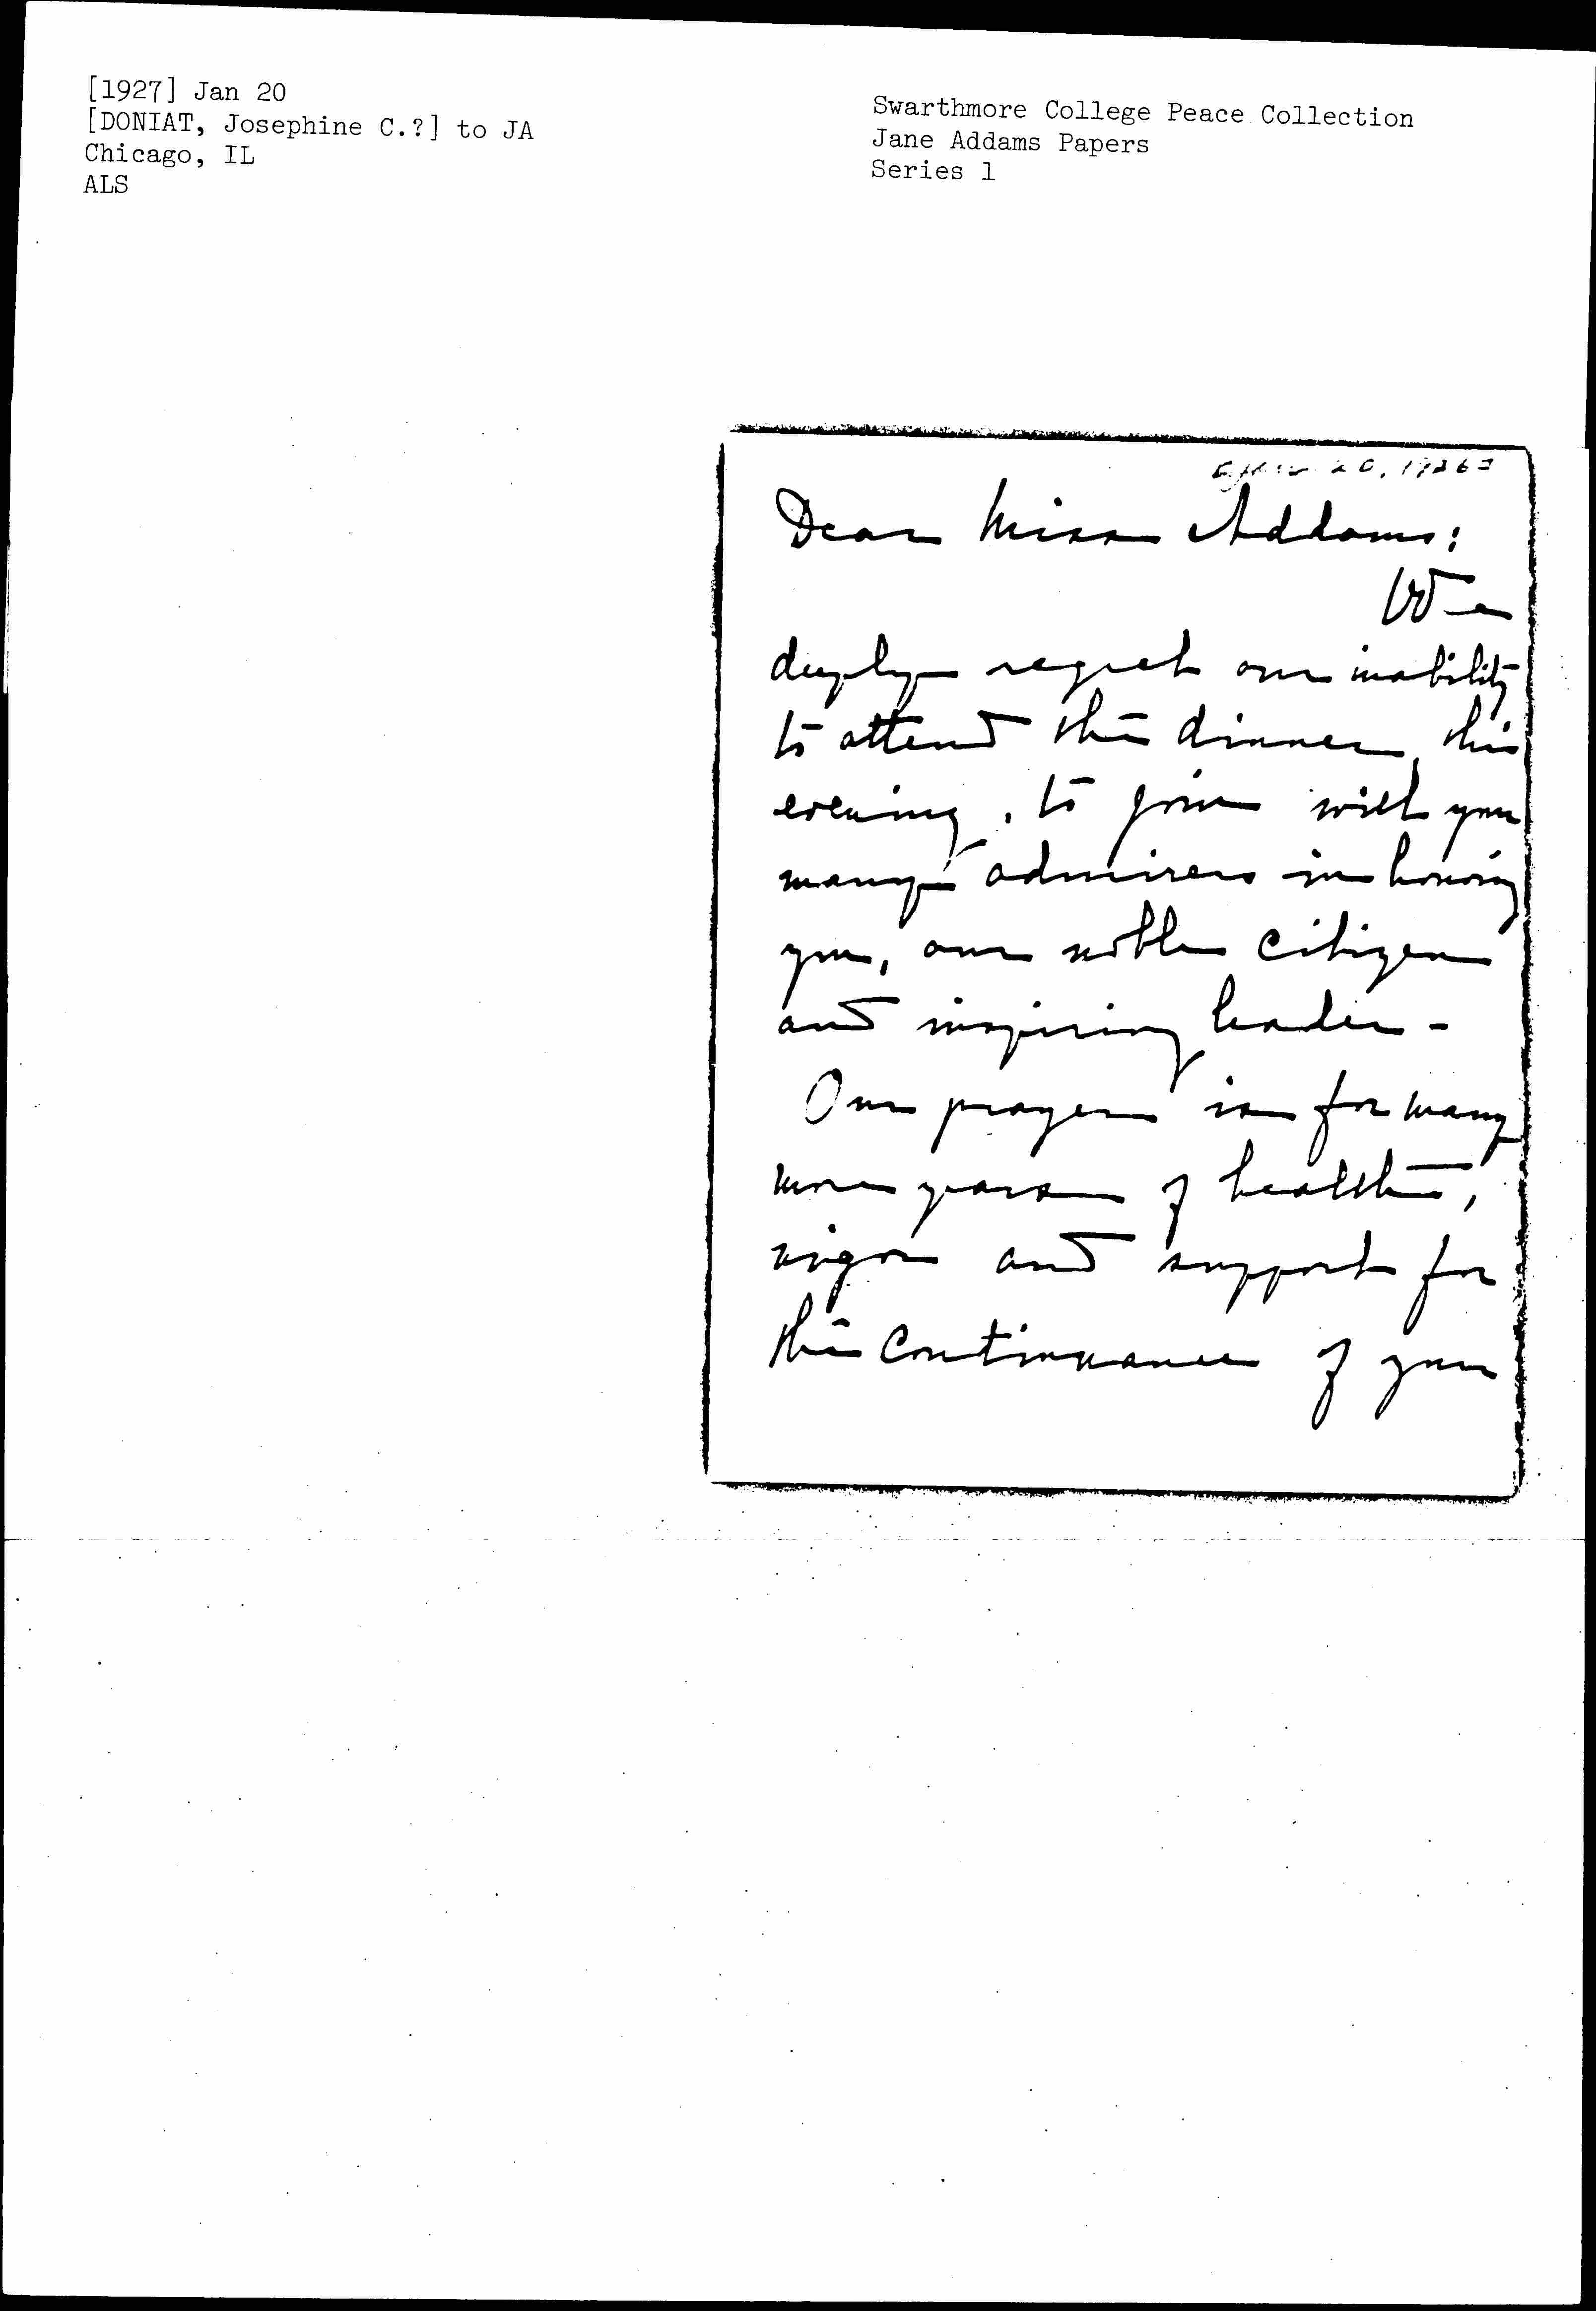 [1927] Jan 20
[DONIAT, Josephine C.?] to JA
Chicago, IL
ALS
Swarthmore College Peace Collection
Jane Addams Papers
Series 1
20, 
Dear Miss Addams:
We
deeply regret our inability
to attend the dinner this
evening, to join with your
many admirers in honoring
you, our noble citizen
and inspiring leader -
Our prayer is for many
more years of health,
vigor and support for
the continuance of your